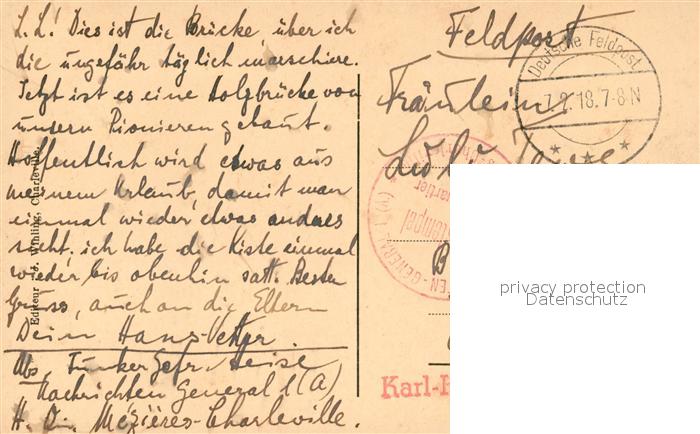 L. L! Dies ist die Brücke, über ich
die ungefähr täglich marschiere.
Jetzt ist es eine Holzbrücke von
unsern Pionieren gebaut.
Hoffentlich wird etwas aus
meinem Urlaub, damit man
einmal wieder etwas anderes
sieht. ich habe die Kiste einmal
wieder bis obenhin satt. Besten
Gruss, auch an die Eltern
Dein Hans-
Abs. Funker Gefr. Heise
Nachrichten General 1 (A)
H. Mézières-Charleville.
Editeur Winling, Charleville
Feldpost
Deutsche Feldpost
18.7-8N
Fräulein
privacy protection
Datenschutz
Karl-